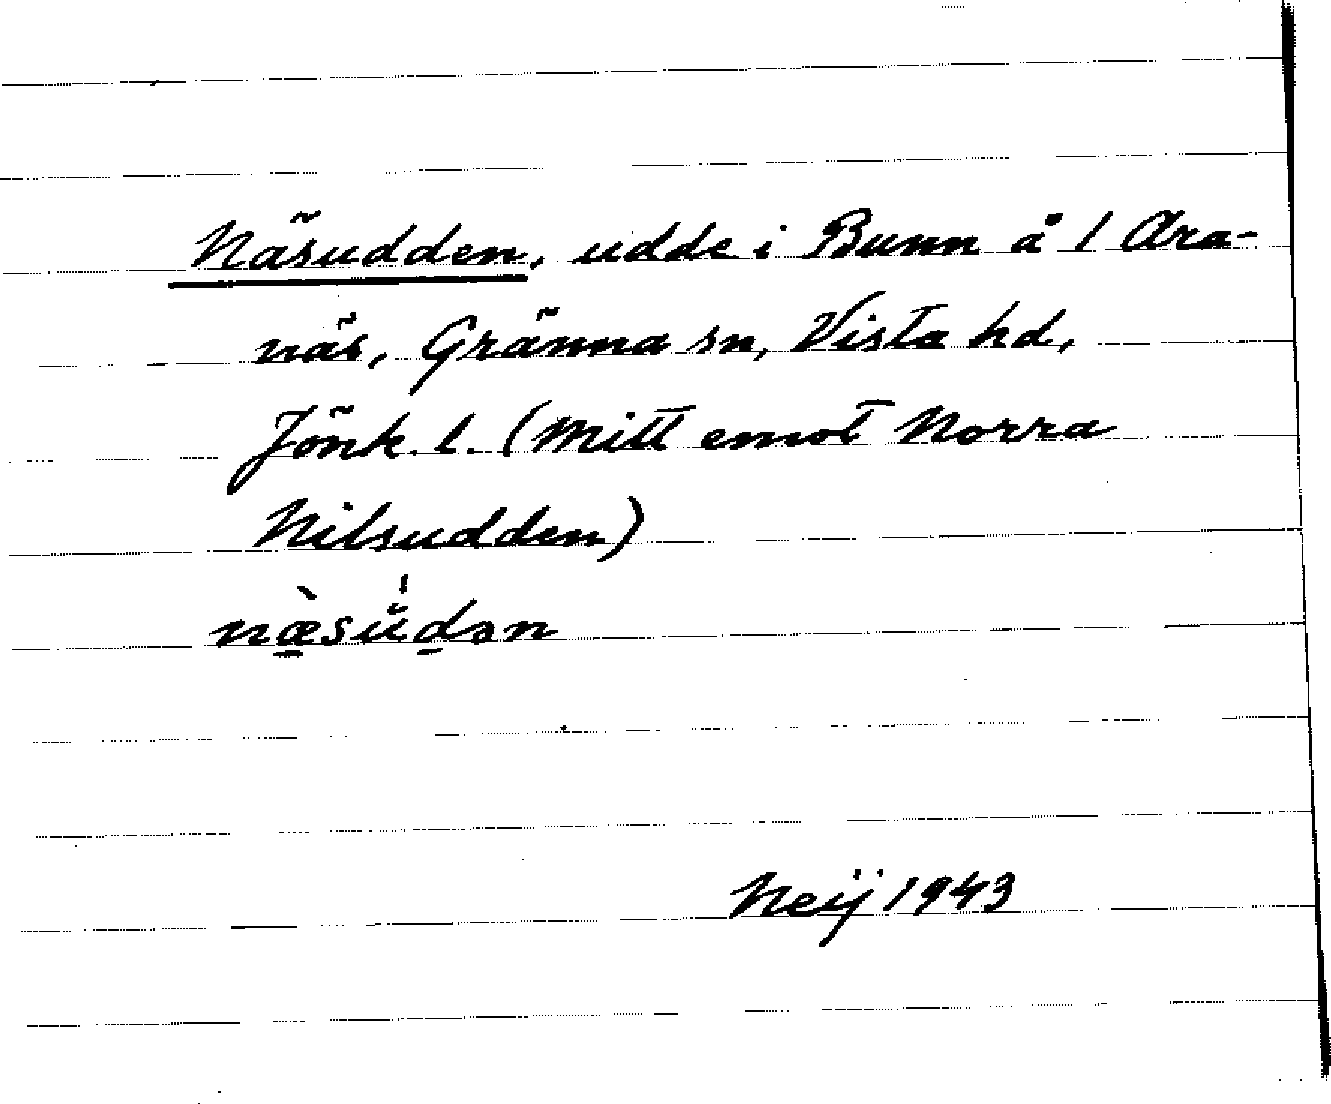 Näsudden, udde i Bunn å 1 Ara-
näs, Gränna sn, Vista hd,
Jönk. l. (Mitt emot Norra
Nilsudden)
næ̀sŭ́dən
Neij 1943